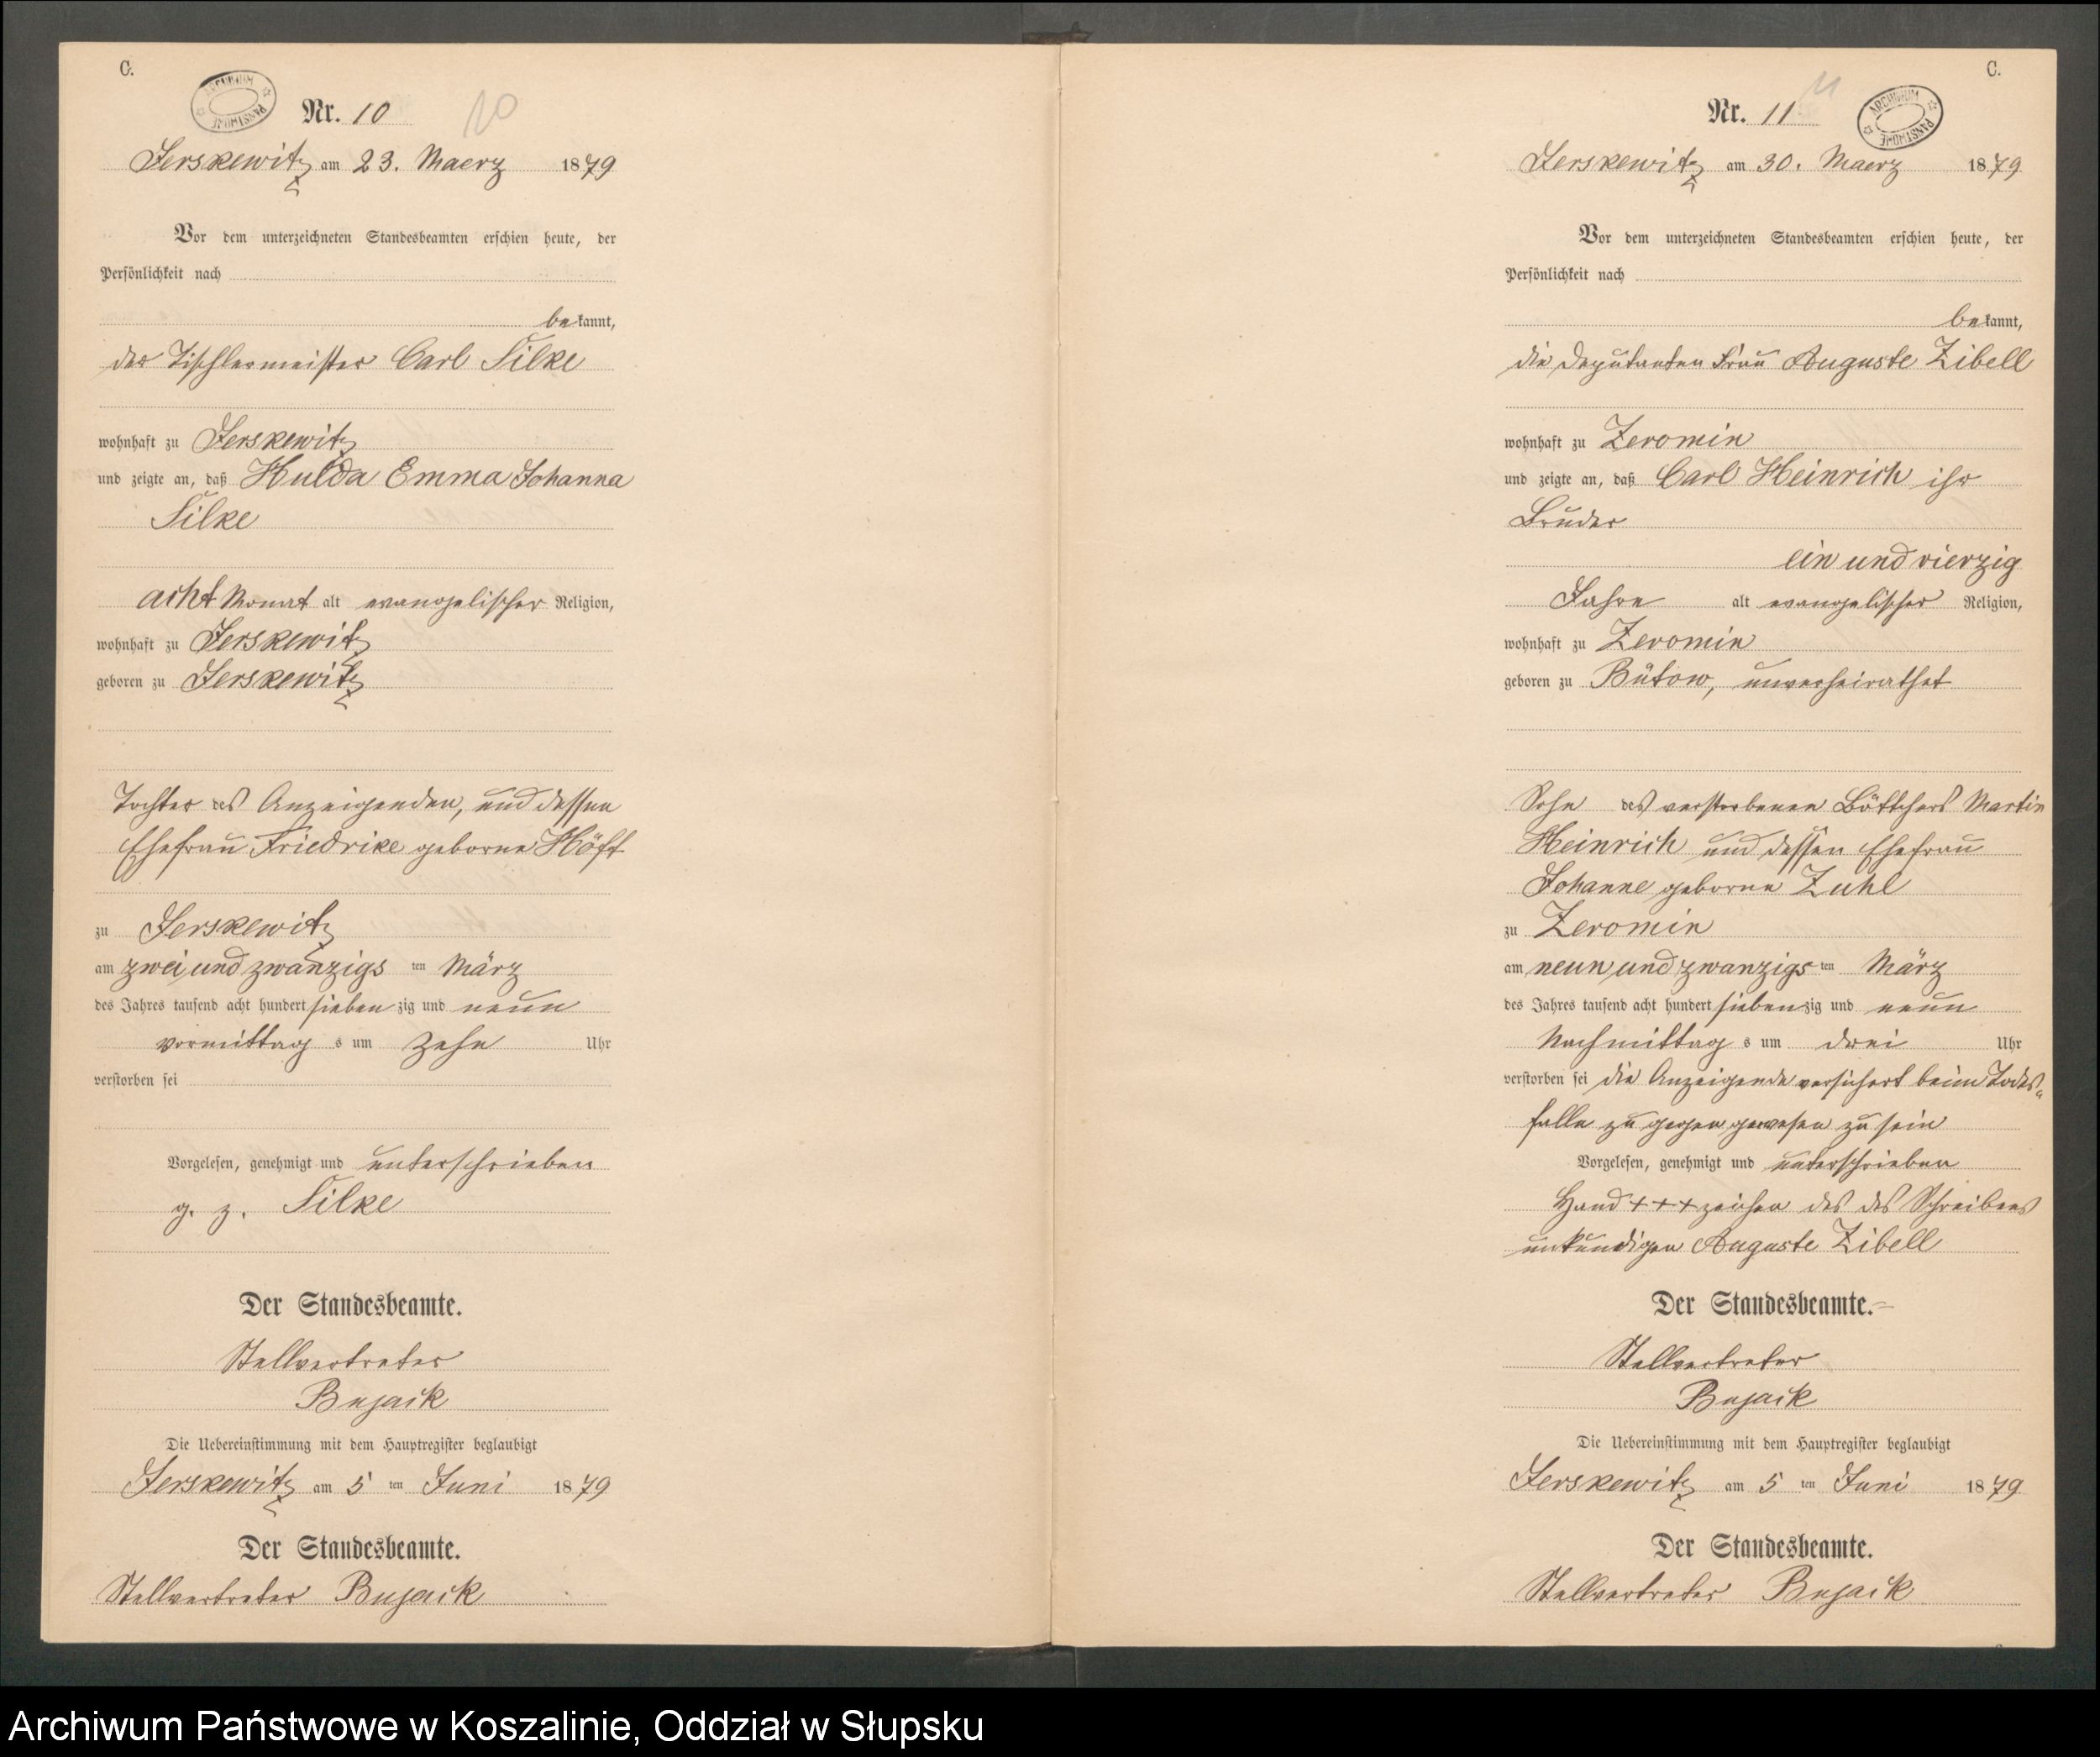 C.
ARCHIWUM PAŃSTWOWE
Nr. 10
10
Jerskewitz am 23. Maerz 1879
Vor dem unterzeichneten Standesbeamten erschien heute, der
Persönlichkeit nach
bekannt,
der Tischlermeister Carl Silke
wohnhaft zu Jerskewitz
und zeigte an, daß Hulda Emma Johanna
Silke
acht Monat alt evangelischer Religion,
wohnhaft zu Jerskewitz
geboren zu Jerskewitz
Tochter des Anzeigenden, und dessen
Ehefrau Friedrike geborne Höft
zu Jerskewitz
am zwei und zwanzigs ten März
des Jahres tausend acht hundert siebenzig und neun
vormittags um zehn Uhr
verstorben sei
Vorgelesen, genehmigt und unterschrieben
g. z. Silke
Der Standesbeamte.
Stellvertreter
Bujack
Die Uebereinstimmung mit dem Hauptregister beglaubigt
Jerskewitz am 5 ten Juni 1879
Der Standesbeamte.
Stellvertreter Bujack
C.
11
Nr. 11
ARCHIWUM PAŃSTWOWE
Jerskewitz am 30. Maerz 1879
Vor dem unterzeichneten Standesbeamten erschien heute, der
Persönlichkeit nach
bekannt,
die Deputanten Frau Auguste Zibell
wohnhaft zu Zeromin
und zeigte an, daß Carl Heinrich ihr
Bruder
ein und vierzig
Jahre alt evangelischer Religion,
wohnhaft zu Zeromin
geboren zu Bütow, unverheirathet
Sohn des verstorbenen Böttchers Martin
Heinrich und dessen Ehefrau
Johanne geborne Zuhl
zu Zeromin
am neun und zwanzigs ten März
des Jahres tausend acht hundert siebenzig und neun
Nachmittags um drei Uhr
verstorben sei die Anzeigende versichert beim Todes-
falle zu gegen gewesen zu sein
Vorgelesen, genehmigt und unterschrieben
Hand +++ zeichen des des Schreibens
unkundigen Auguste Zibell
Der Standesbeamte.
Stellvertreter
Bujack
Die Uebereinstimmung mit dem Hauptregister beglaubigt
Jerskewitz am 5 ten Juni 1879
Der Standesbeamte.
Stellvertreter Bujack
Archiwum Państwowe w Koszalinie, Oddział w Słupsku